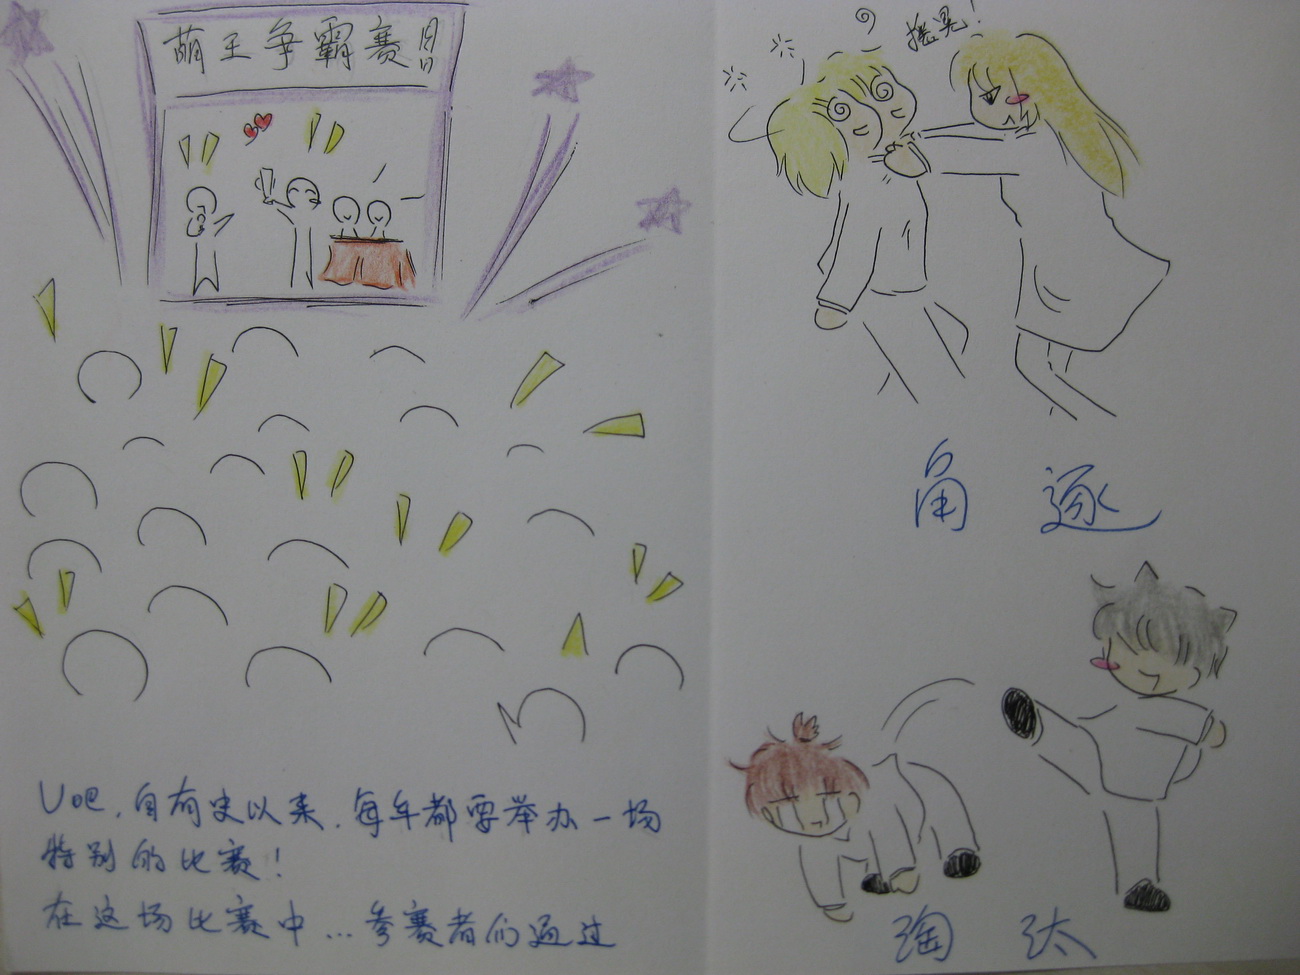 萌王争霸赛
U吧，自有史以来，每年都要举办一场
特别的比赛！
在这场比赛中...参赛者们通过
摇晃！
角逐
淘汰